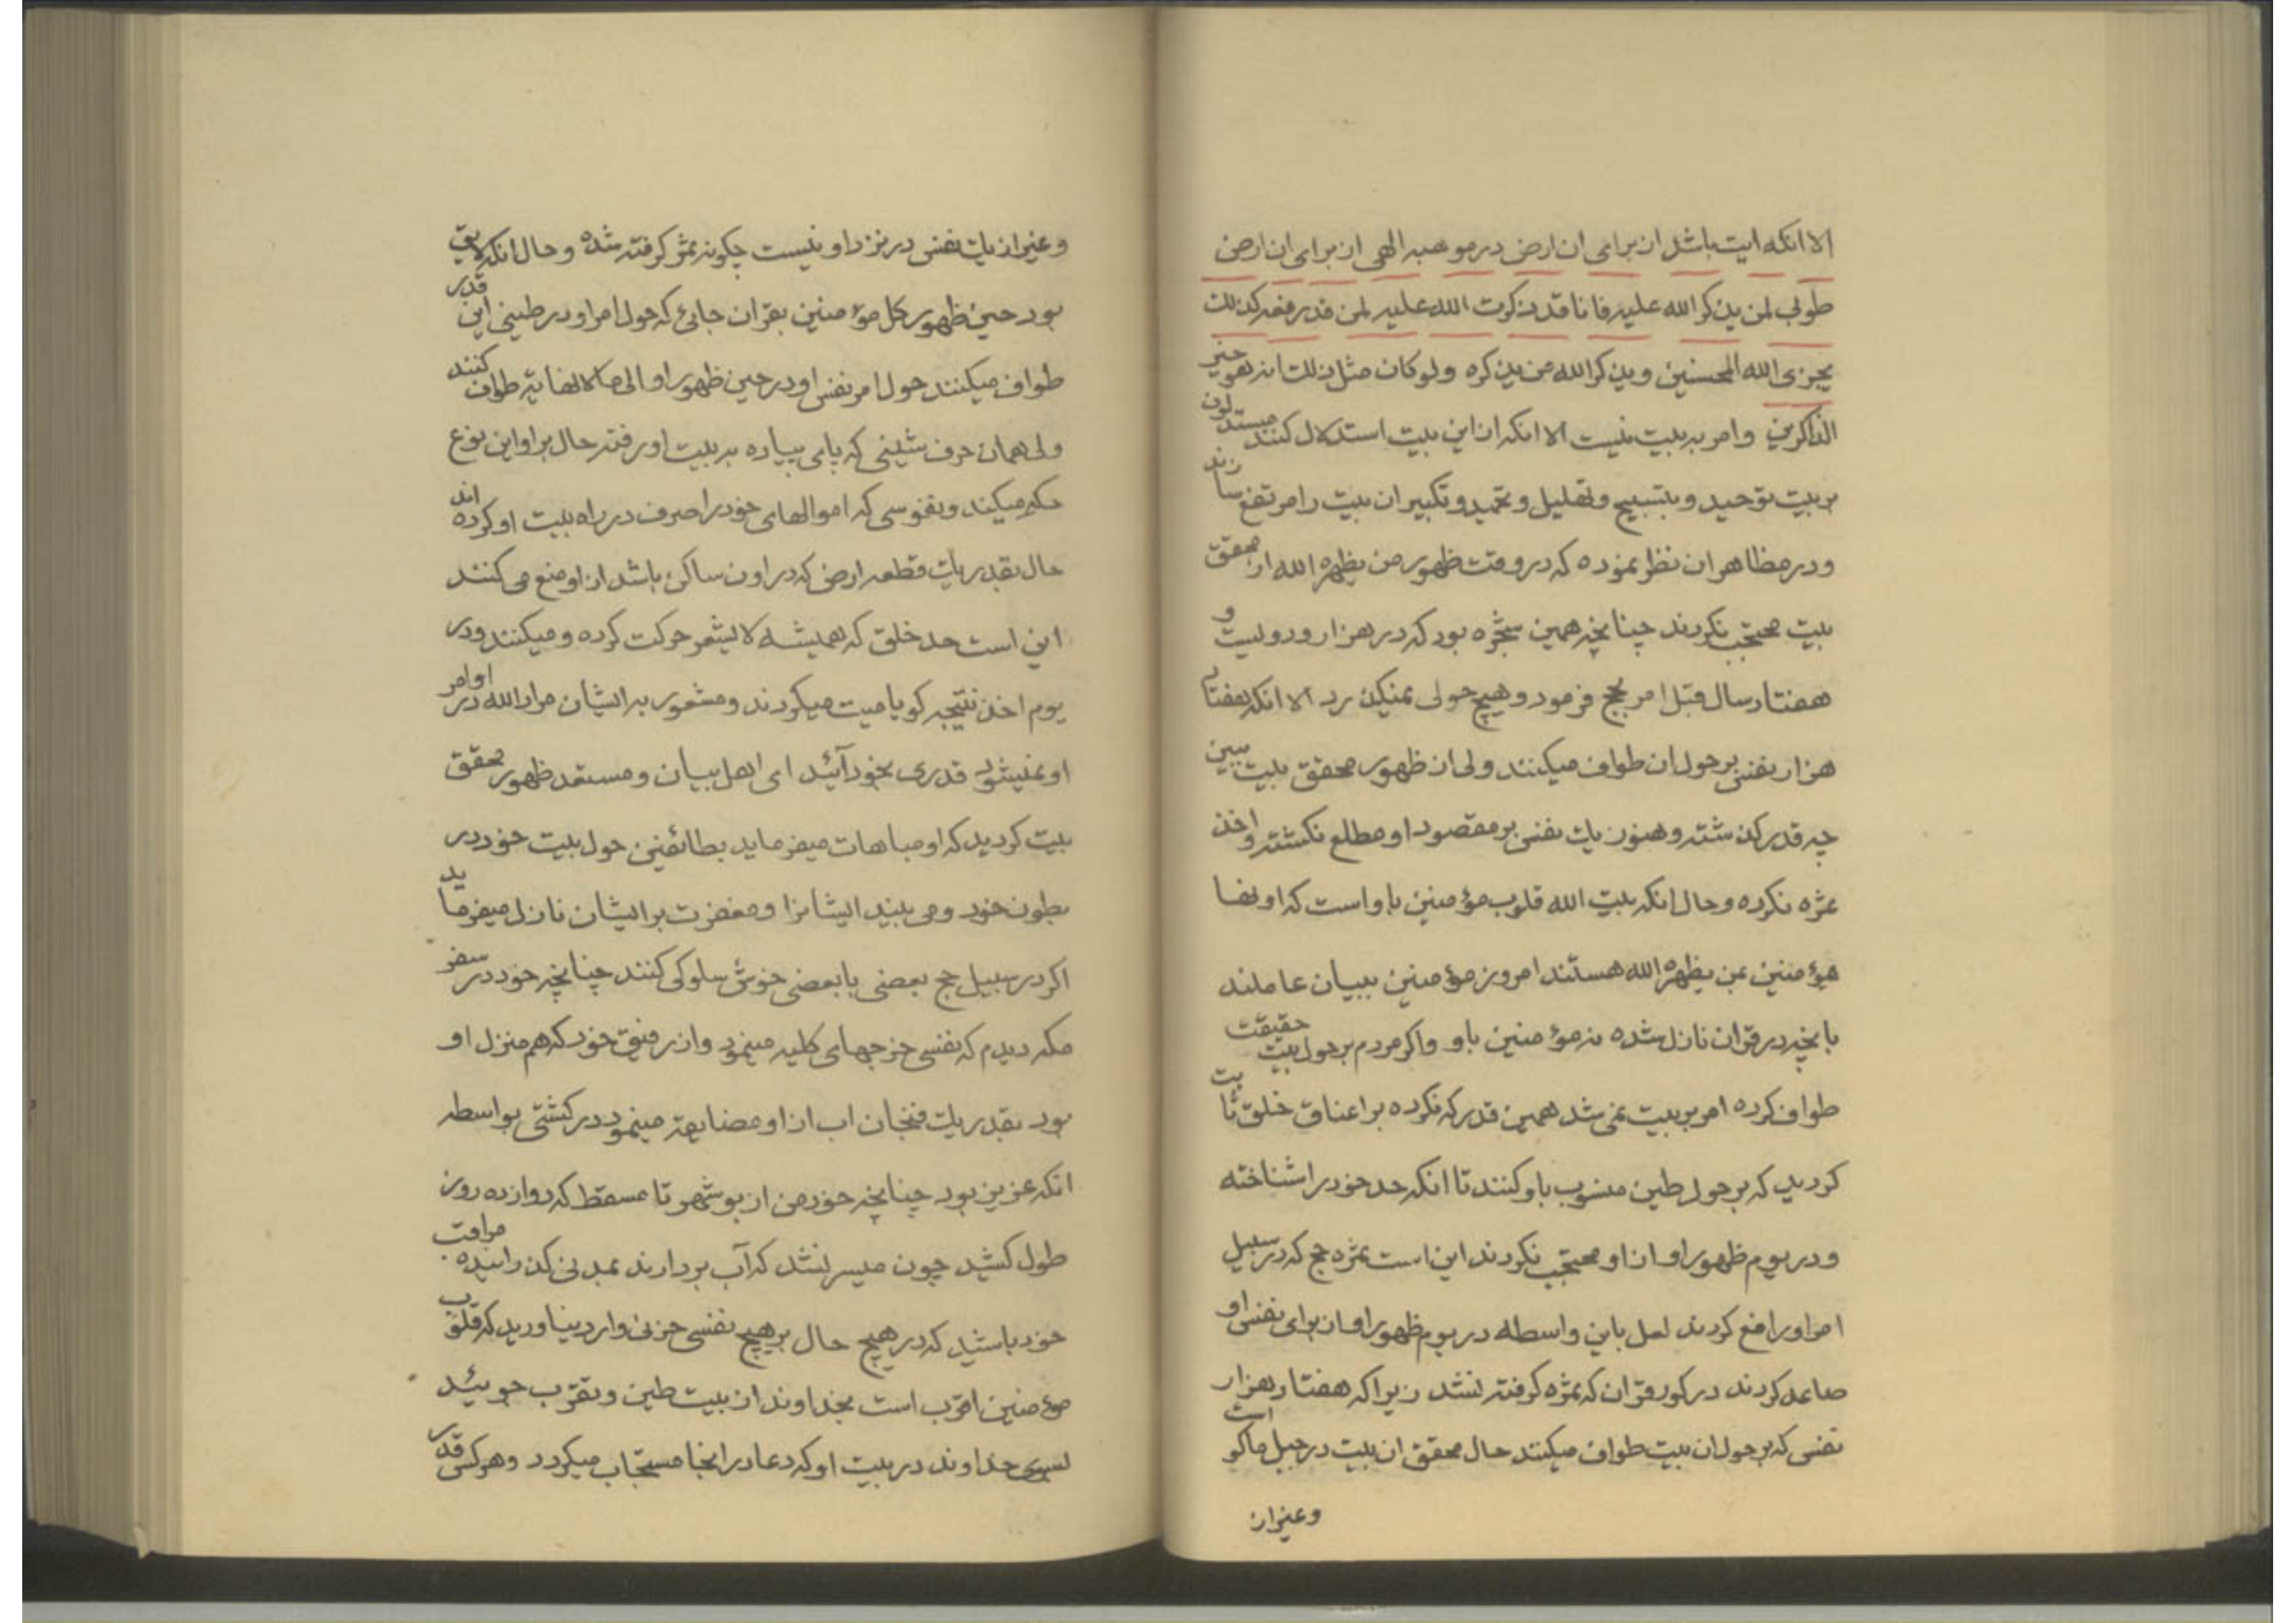 الا انکه ایت باشد از برای ان ارض در موهبه الهی از برای ان ارض
طوبی لمن یذکر الله علیه فانا قد ذکرت الله علیه لمن قدر فعه کذلک
یجزی الله المحسنین و یذکر الله من یذکره ولو کان مثل ذلک انه هو خیر
الذاکرین وامر به بیت نیست الا انکه از این بیت استدلال کنند مستدلون
بر بیت توحید و بتسبیح و تهلیل و تحمید و تکبیر ان بیت را مرتفع سازند
و در مظاهر ان نظر نموده که در وقت ظهور من یظهره الله از محقق
بیت محتجب نکردند چنانچه همین شجره بود که در هزار و دویست و
هفتاد سال قبل امر بحج فرمود و هیچ حولی نمیکذرد الا انکه هفتاد
هزار نفس بر حول ان طواف میکنند ولی از ظهور محقق بیت ببین
چه قدر کذشته و هنوز یک نفس بر مقصود او مطلع نکشته و اخذ
ثمره نکرده و حال انکه بیت الله قلوب مؤمنین باو است که اونها
مؤمنین بمن یظهره الله هستند امروز مؤمنین ببیان عاملند
بانچه در قران نازل شده نه مؤمنین باو واکر مردم بر حول بیت حقیقت
طواف کرده امر بر بیت نمی شد همین قدر که نکرده بر اعناق خلق ثابت
کردید که بر حول طین منسوب باو کنند تا انکه حد خود را شناخته
و در یوم ظهور او از او محتجب نکردند این است ثمره حج که در سبیل
امر او رافع کردند لعل باین واسطه در یوم ظهور او از برای نفس او
صاعد کردند در کور قران که ثمره کرفته نشد زیرا که هفتاد هزار
نفس که بر حول ان بیت طواف میکنند حال محقق ان بیت در جبل ماکو است
و غیر از
و غیر از یک نفس در نزد او نیست چکونه ثمر کرفته شده و حال انکه لایق
بود حین ظهور کل مؤمنین بقران جائی که حول امر او در طینی این قدر
طواف میکنند حول امر نفس او در حین ظهور او الی ما لا نهایه طواف کنند
ولی همان حرف شیئی که پای پیاده به بیت او رفته حال بر او این نوع
حکم میکند و نفوسی که اموالهای خود را صرف در راه بیت او کرده اند
حال بقدر یک قطعه ارض که در اون ساکن باشد از او منع می کنند
این است حد خلق که همیشه لا یشعر حرکت کرده و میکنند و در
یوم اخذ نتیجه کویا میت میکردند و مشعور به ایشان مراد الله در اوامر
او نمیشود قدری بخود آئید ای اهل بیان و مستعد ظهور محقق
بیت کردید که او مباهات میفرماید بطائفین حول بیت خود در
بطون خود و می بیند ایشانرا و مغفرت بر ایشان نازل میفرماید
اکر در سبیل حج بعضی با بعضی خوش سلوکی کنند چنانچه خود در سفر
مکه دیدم که نفسی خرجهای کلیه مینمود و از رفیق خود که هم منزل او
بود بقدر یک فنجان اب از او مضایقه مینمود در کشتی بواسطه
انکه عزیز بود چنانچه خود من از بوشهر تا مسقط که دوازده روز
طول کشید چون میسر نشد که آب بردارند بمدنی کذرانیده مراقب
خود باشید که در هیچ حال بر هیچ نفسی حزنی وارد نیاورید که قلوب
مؤمنین اقرب است بخداوند از بیت طین و تقرب جوئید
بسوی خداوند در بیت او که دعا در انجا مستجاب میکردد و هر کس قدر